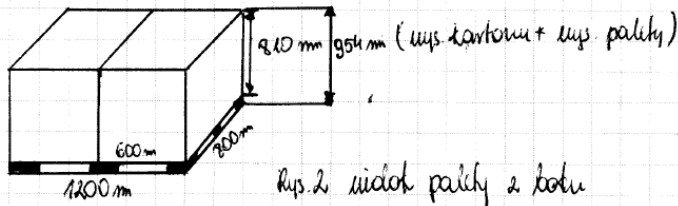 810 mm 954 m (wys. kartonu + wys. palety)
600m
800m
1200 m
Rys. 2 widok palety z boku